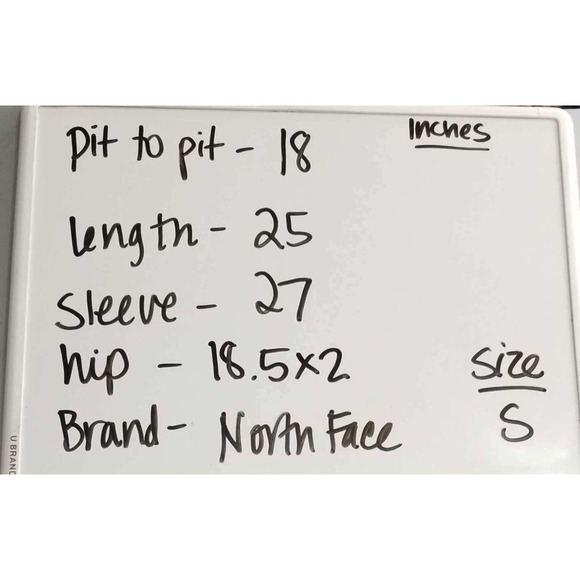 Pit to pit - 18
Inches
Length - 25
Sleeve - 27
hip - 18.5x2
Size
S
Brand - North Face
U BRAND